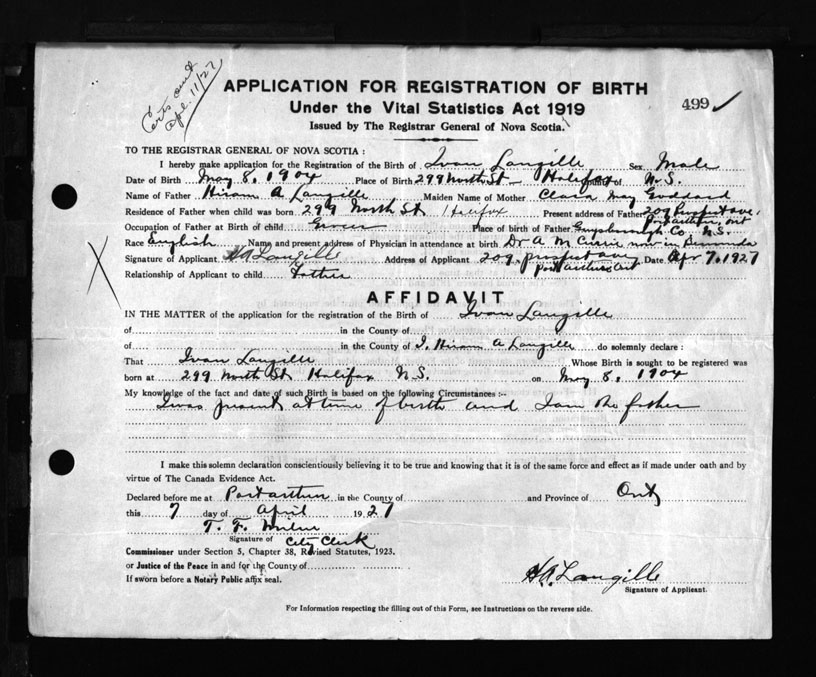 Certs sent
Apl. 11/27
APPLICATION FOR REGISTRATION OF BIRTH
499 ✓
Under the Vital Statistics Act 1919
Issued by The Registrar General of Nova Scotia.
TO THE REGISTRAR GENERAL OF NOVA SCOTIA :
I hereby make application for the Registration of the Birth of Ivan Langille Sex Male
Date of Birth May 8, 1904 Place of Birth 299 North St Halifax N.S.
Name of Father Hiram A Langille Maiden Name of Mother Clara May Goddard
Residence of Father when child was born 299 North St Halifax Present address of Father 209 Prospect ave, Port Arthur, Ont
Occupation of Father at Birth of child Grocer Place of birth of Father Guysborough Co N.S.
Race English Name and present address of Physician in attendance at birth Dr A M Currie now in Bermuda
Signature of Applicant HA Langille Address of Applicant 209 prospect ave Port Arthur Ont Date Apr 7, 1927
Relationship of Applicant to child Father
X
AFFIDAVIT
IN THE MATTER of the application for the registration of the Birth of Ivan Langille
of in the County of
of in the County of I, Hiram A Langille do solemnly declare :
That Ivan Langille Whose Birth is sought to be registered was
born at 299 North St Halifax N.S. on May 8, 1904
My knowledge of the fact and date of such Birth is based on the following Circumstances :-
I was present at time of birth and I am the father
I make this solemn declaration conscientiously believing it to be true and knowing that it is of the same force and effect as if made under oath and by
virtue of The Canada Evidence Act.
Declared before me at Port Arthur in the County of and Province of Ont
this 7 day of April 1927
T. F. Milne
Signature of City Clerk
Commissioner under Section 5, Chapter 38, Revised Statutes, 1923.
or Justice of the Peace in and for the County of
If sworn before a Notary Public affix seal.
HA Langille
Signature of Applicant.
For Information respecting the filling out of this Form, see Instructions on the reverse side.